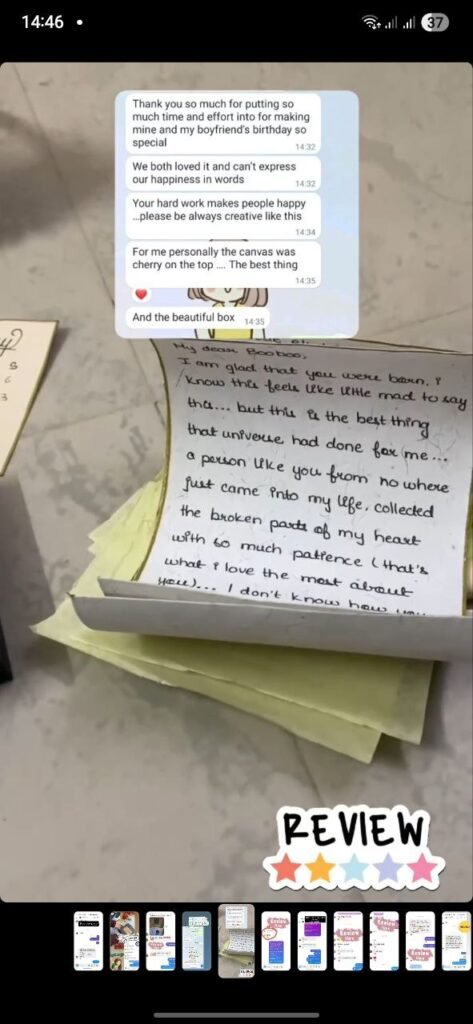 14:46
37
Thank you so much for putting so
much time and effort into for making
mine and my boyfriend's birthday so
special
14:32
We both loved it and can't express
our happiness in words
14:32
Your hard work makes people happy
...please be always creative like this
14:34
For me personally the canvas was
cherry on the top .... The best thing
14:35
And the beautiful box
14:35
My dear Booboo,
I am glad that you were born, i
know this feels like little mad to say
this... but this is the best thing
that universe had done for me...
a person like you from no where
just came into my life, collected
the broken parts of my heart
with so much patience (that's
what i love the most about
you)... I don't know how you
REVIEW